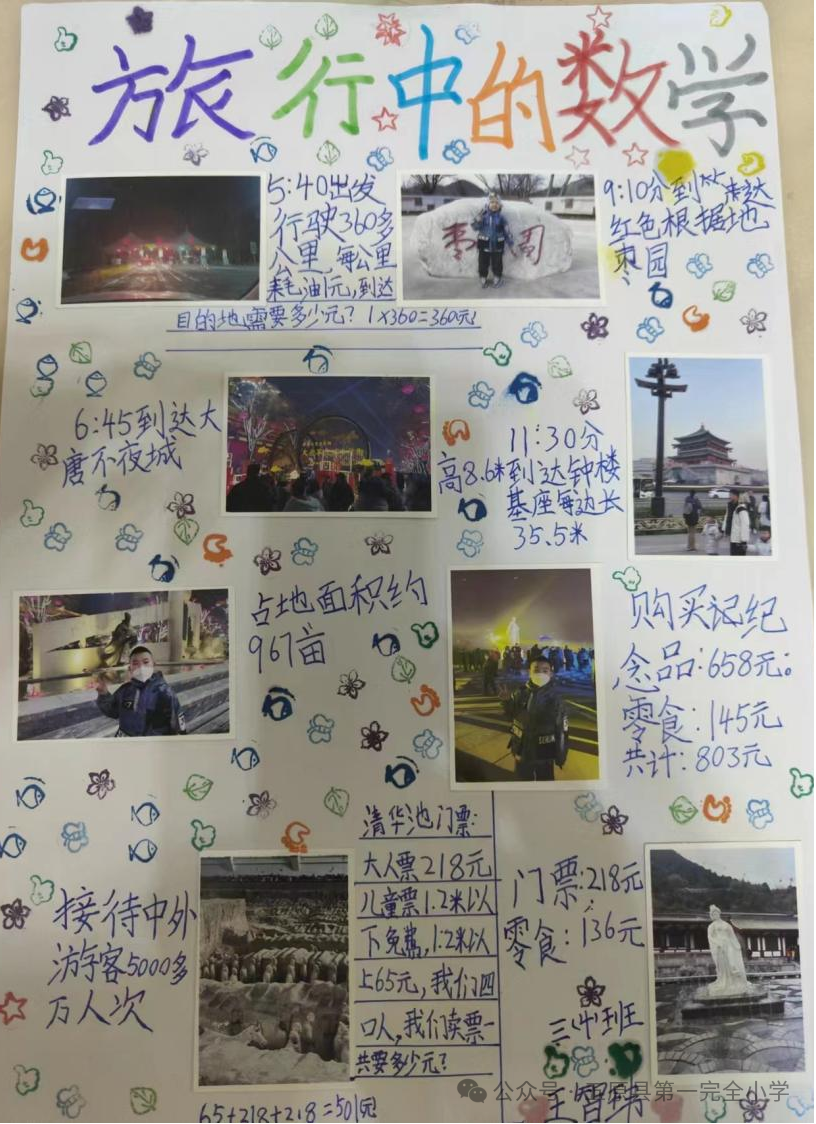 旅行中的数学
5:40出发
行驶360多
公里,每公里
耗油1元,到达
目的地需要多少元?1×360=360元
9:10分到 来达
红色根据地
枣园
枣园
6:45到达大
唐不夜城
11:30分
高8.6米到达钟楼
基座每边长
35.5米
占地面积约
967亩
购买记纪
念品:658元。
零食:145元
共计:803元
接待中外
游客5000多
万人次
清华池门票:
大人票218元
儿童票1.2米以
下免费,1.2米以
上65元,我们四
口人,我们买票一
共要多少元?
65+218+218=501元
门票:218元
零食:136元
三
班
王智
公众号
县第一完全小学